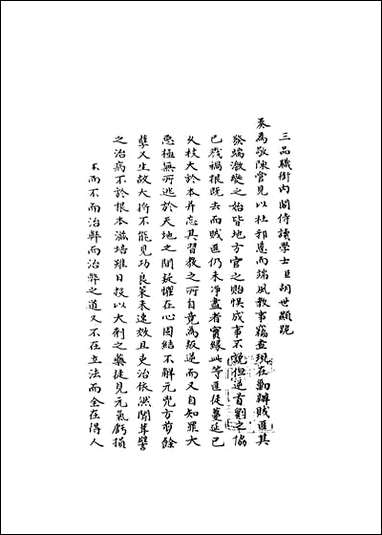 三品職銜內閣侍讀學士臣胡世顯跪
奏為敬陳管見以杜邪慝而端風教事竊查現在勦辦賊匪其
發端激變之始皆地方官之貽悞成事不說但逆首劉之協
已成禍根既去而賊匪仍未淨盡者實緣此等匪徒蔓延已
久枝大於本并忘其習教之所自竟為叛逆而又自知罪大
惡極無所逃於天地之間疑懼在心固結不解元兇方剪餘
孽又生故大捬不能見功良策未速效且吏治依然闒茸譬
之治病不於根本滋培雖日投以大劑之藥徒見元氣虧損
而不治弊而治弊之道又不在立法而全在得人